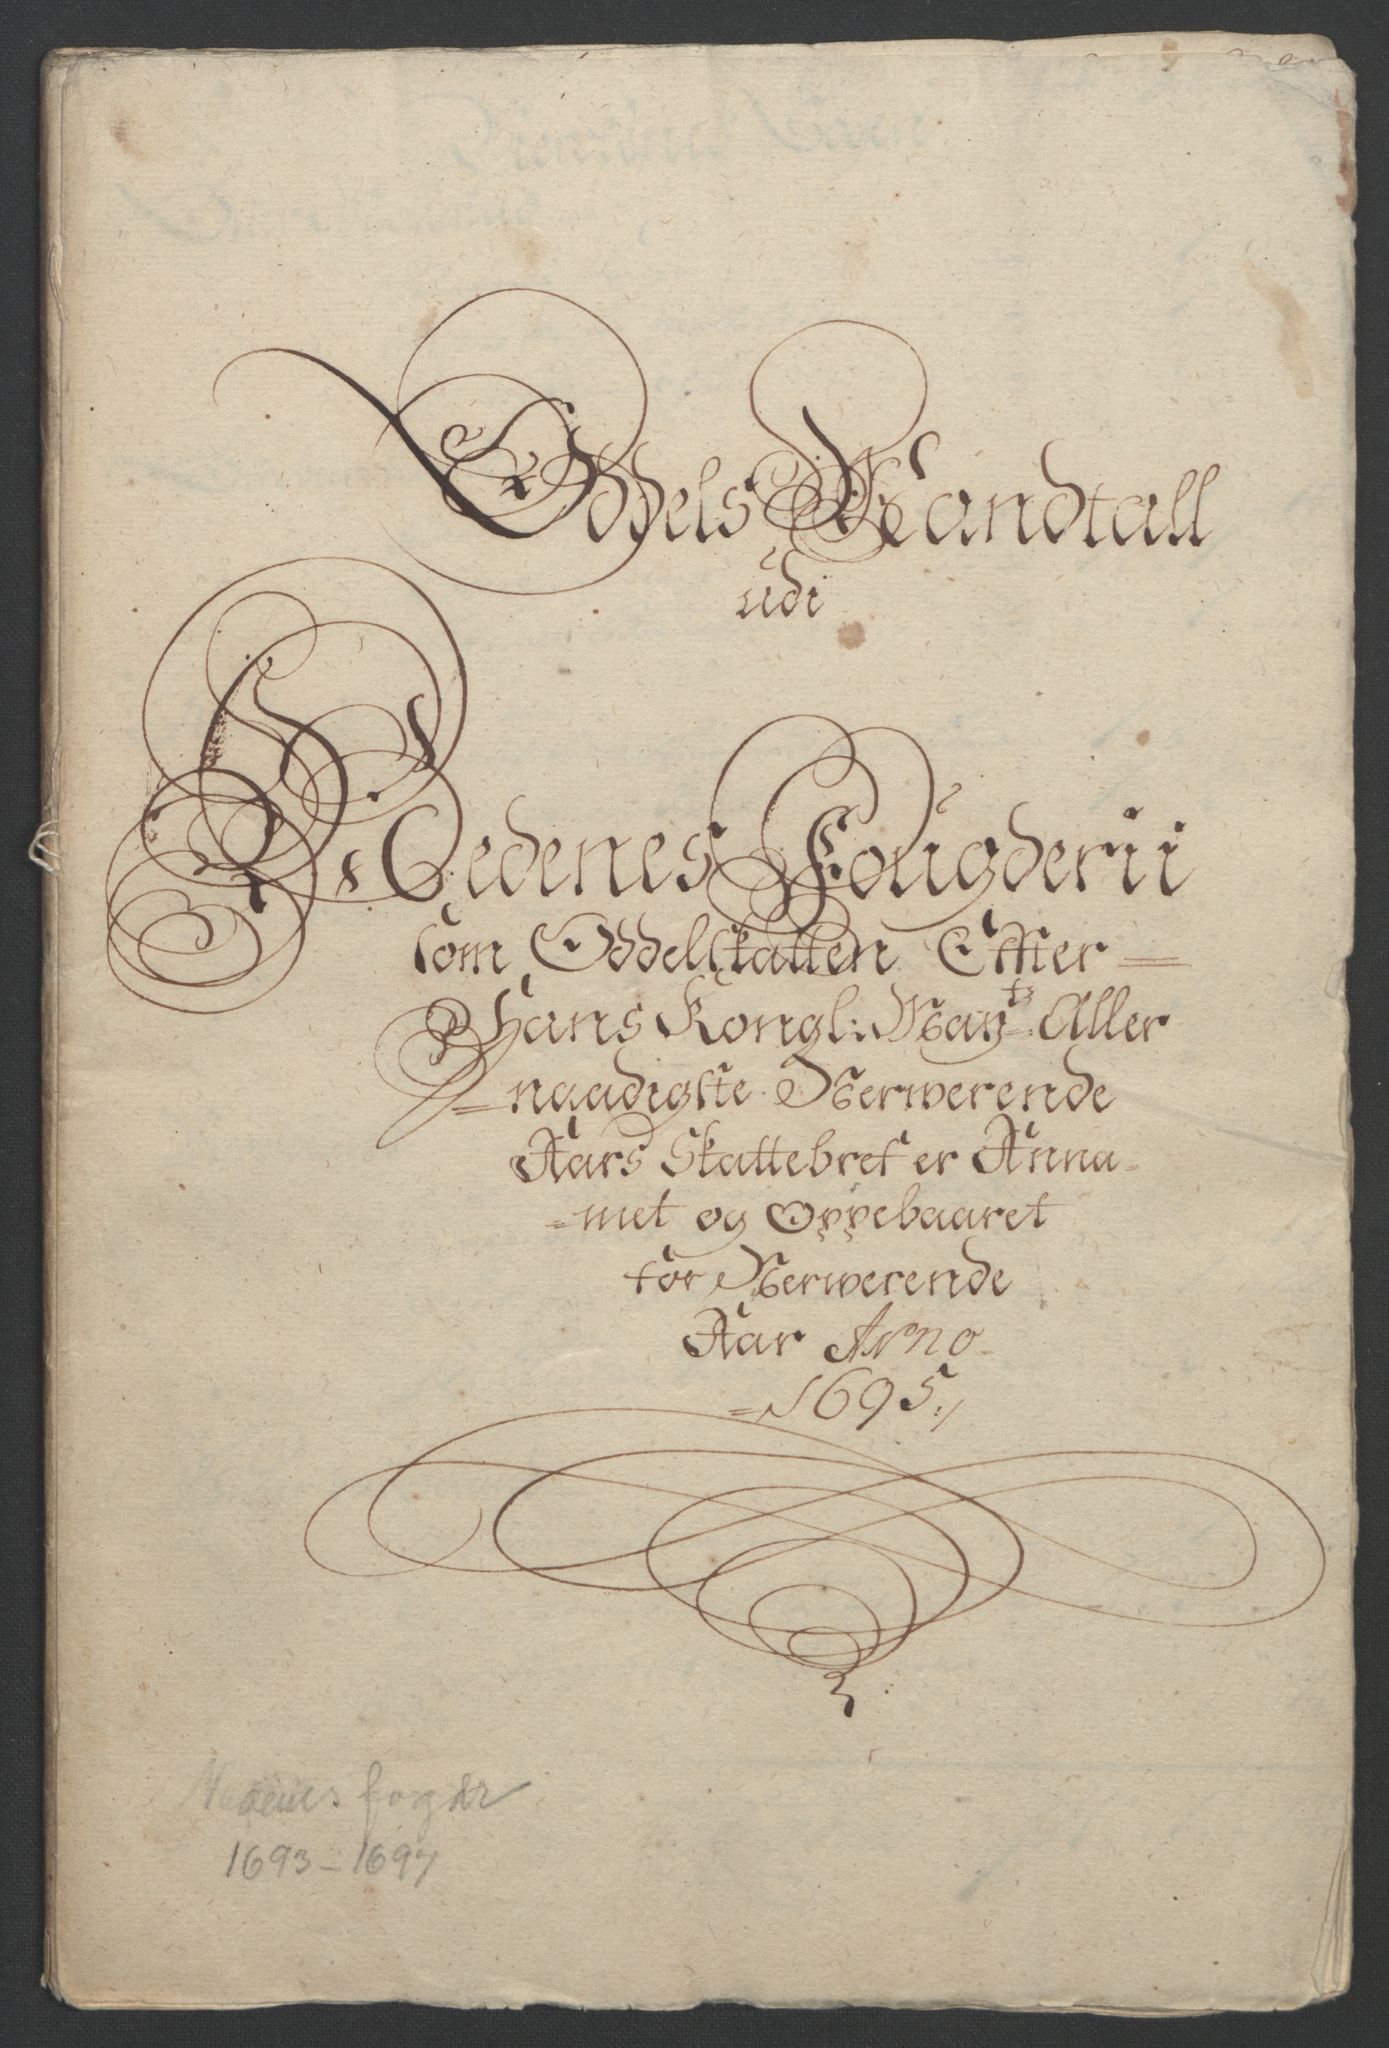 Oddels Mandtall
udi
Nedenes Fougderii
som Oddelskatten Effter
Hans Kongl: May.ts Aller
naadigste Nerwerende
Aars Skattebref er Anna-
met og Oppebaaret
for Nerwerende
Aar Anno
1695
Nedenes fogderi
1693-1697